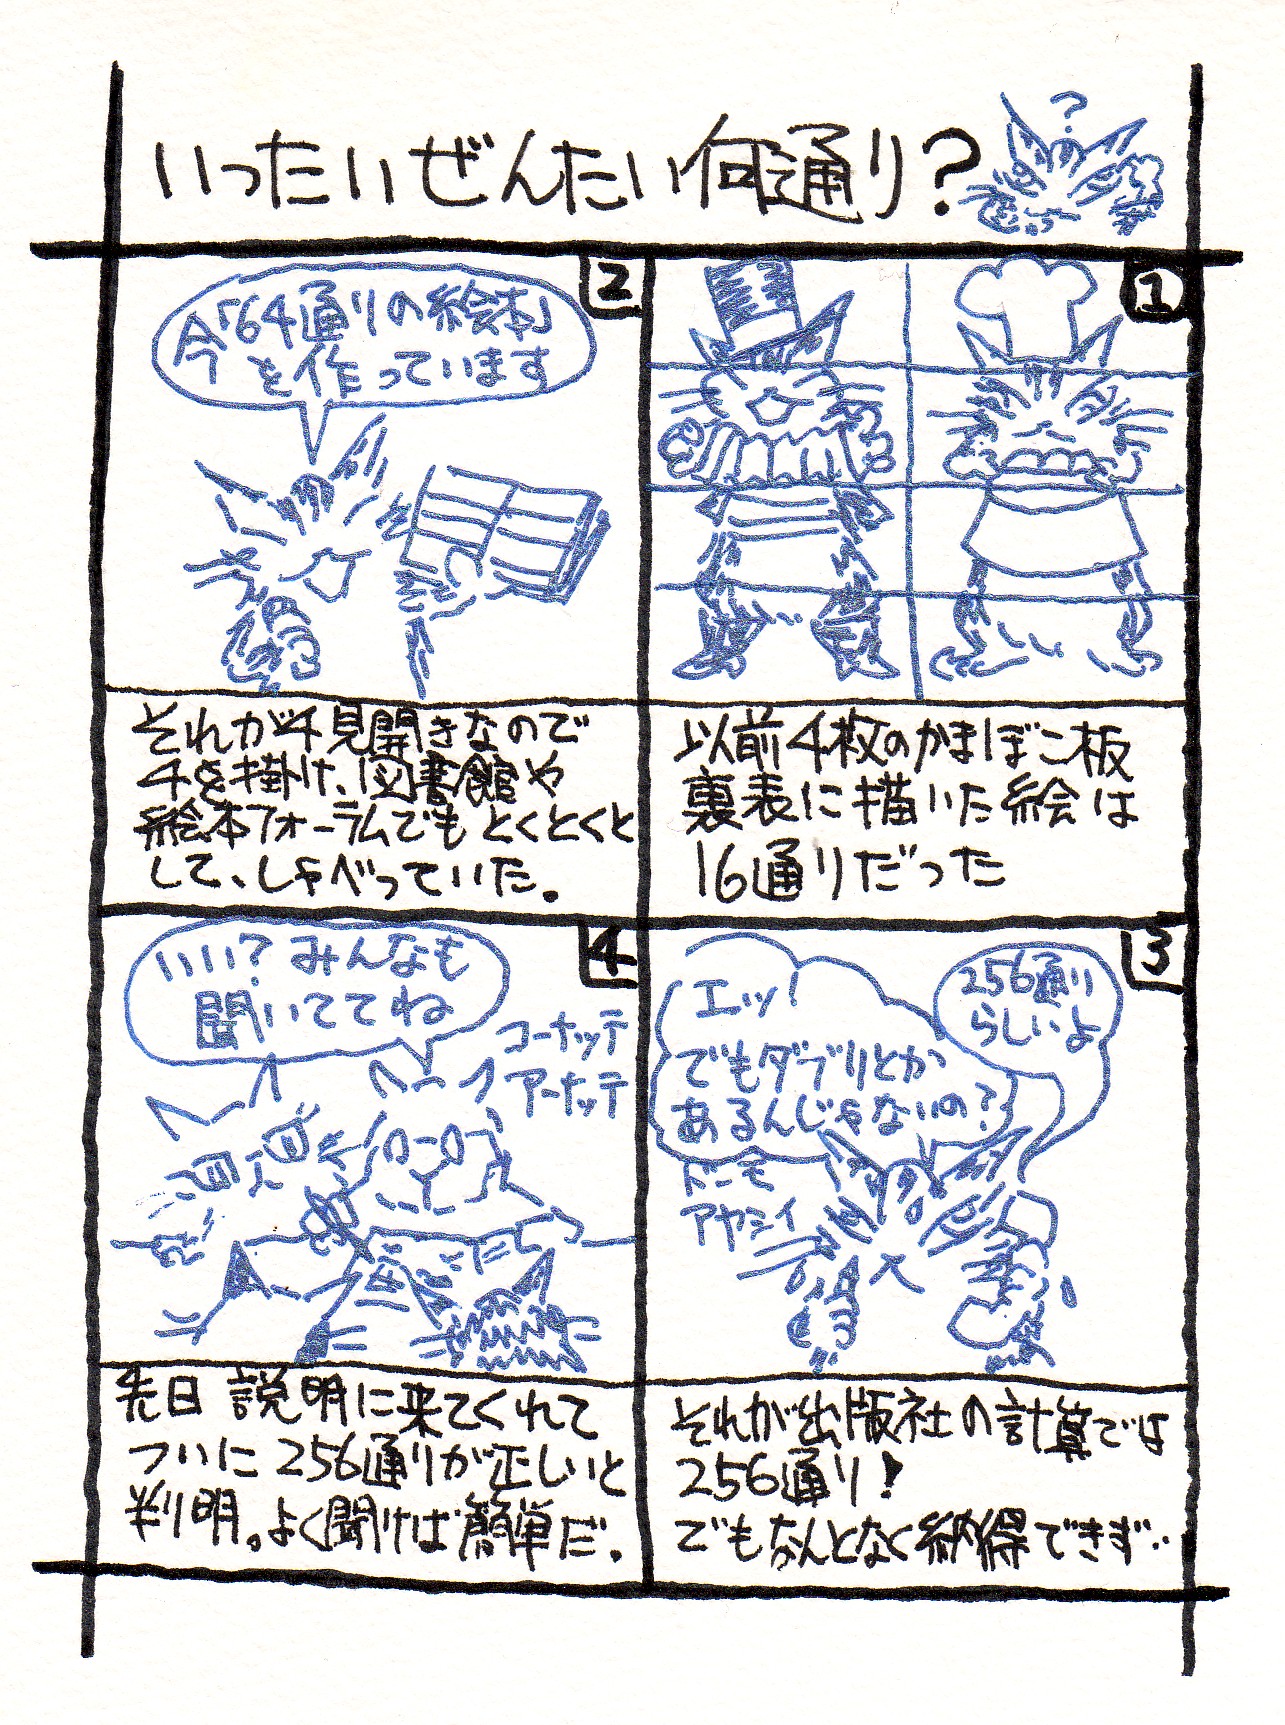 いったいぜんたい何通り?
?
1
以前4枚のかまぼこ板
裏表に描いた絵は
16通りだった
2
今「64通りの絵本」
を作っています
それが4見開きなので
4を掛け、図書館や
絵本フォーラムでもとくとくと
して、しゃべっていた。
3
256通り
らしいよ
エッ!
でもダブリとか
あるんじゃないの?
ドーモ
アヤシイ
それが出版社の計算では
256通り!
でもなんとなく納得できず‥
4
いい?みんなも
聞いててね
コーナッテ
アーナッテ
先日説明に来てくれて
ついに256通りが正しいと
判明。よく聞けば簡単だ.